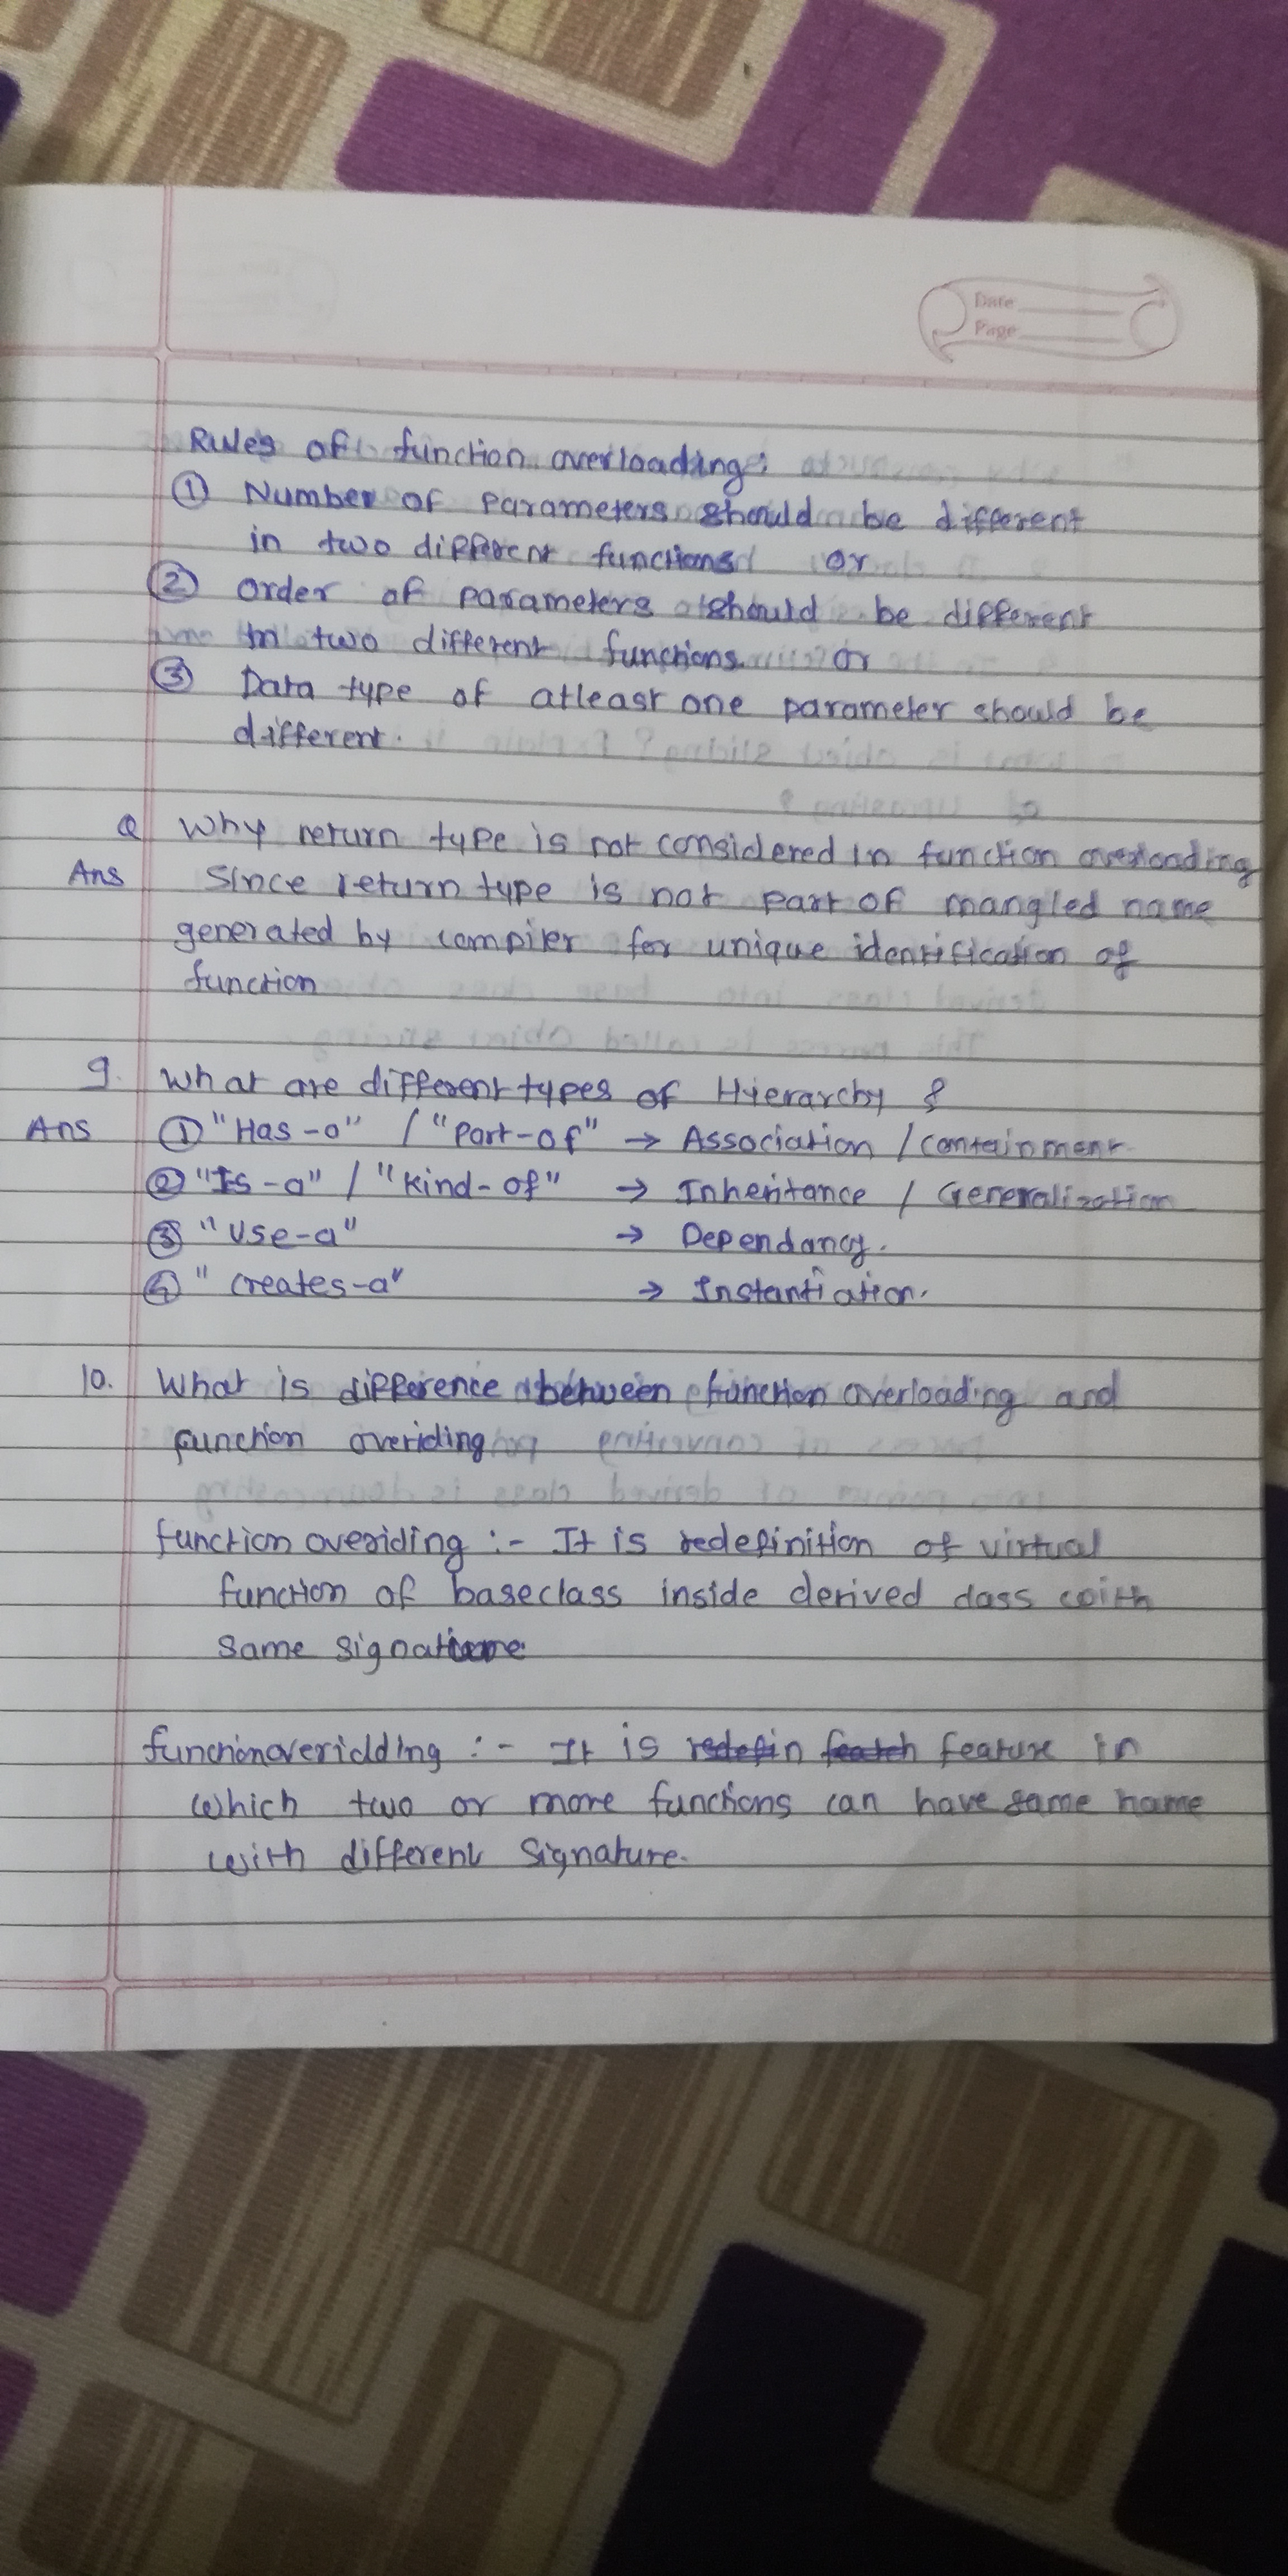 Date
Page
Rules of function overloading:
① Number of parameters should be different
in two different functions or
② order of parameters should be different
in two different functions. or
③ Data type of atleast one parameter should be
different.
Q Why return type is not considered in function overloading
Ans Since return type is not part of mangled name
generated by compiler for unique identification of
function
9. What are different types of Hierarchy ?
Ans ① "Has-a" / "Part-of" → Association / containment
② "Is-a" / "Kind-of" → Inheritance / Generalization
③ "Use-a" → Dependancy.
④ "creates-a" → Instantiation.
10. What is difference between function overloading and
function overiding
function overiding :- It is redefinition of virtual
function of baseclass inside derived class with
same signature
function overidding :- It is redefin featch feature in
which two or more functions can have same name
with different signature.